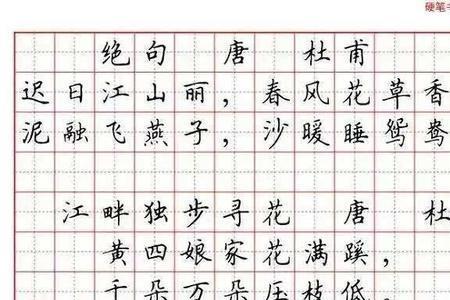 硬笔
绝句 唐 杜甫
迟日江山丽，春风花草香
泥融飞燕子，沙暖睡鸳鸯
江畔独步寻花 唐 杜
黄四娘家花满蹊，
千朵万朵压枝低，